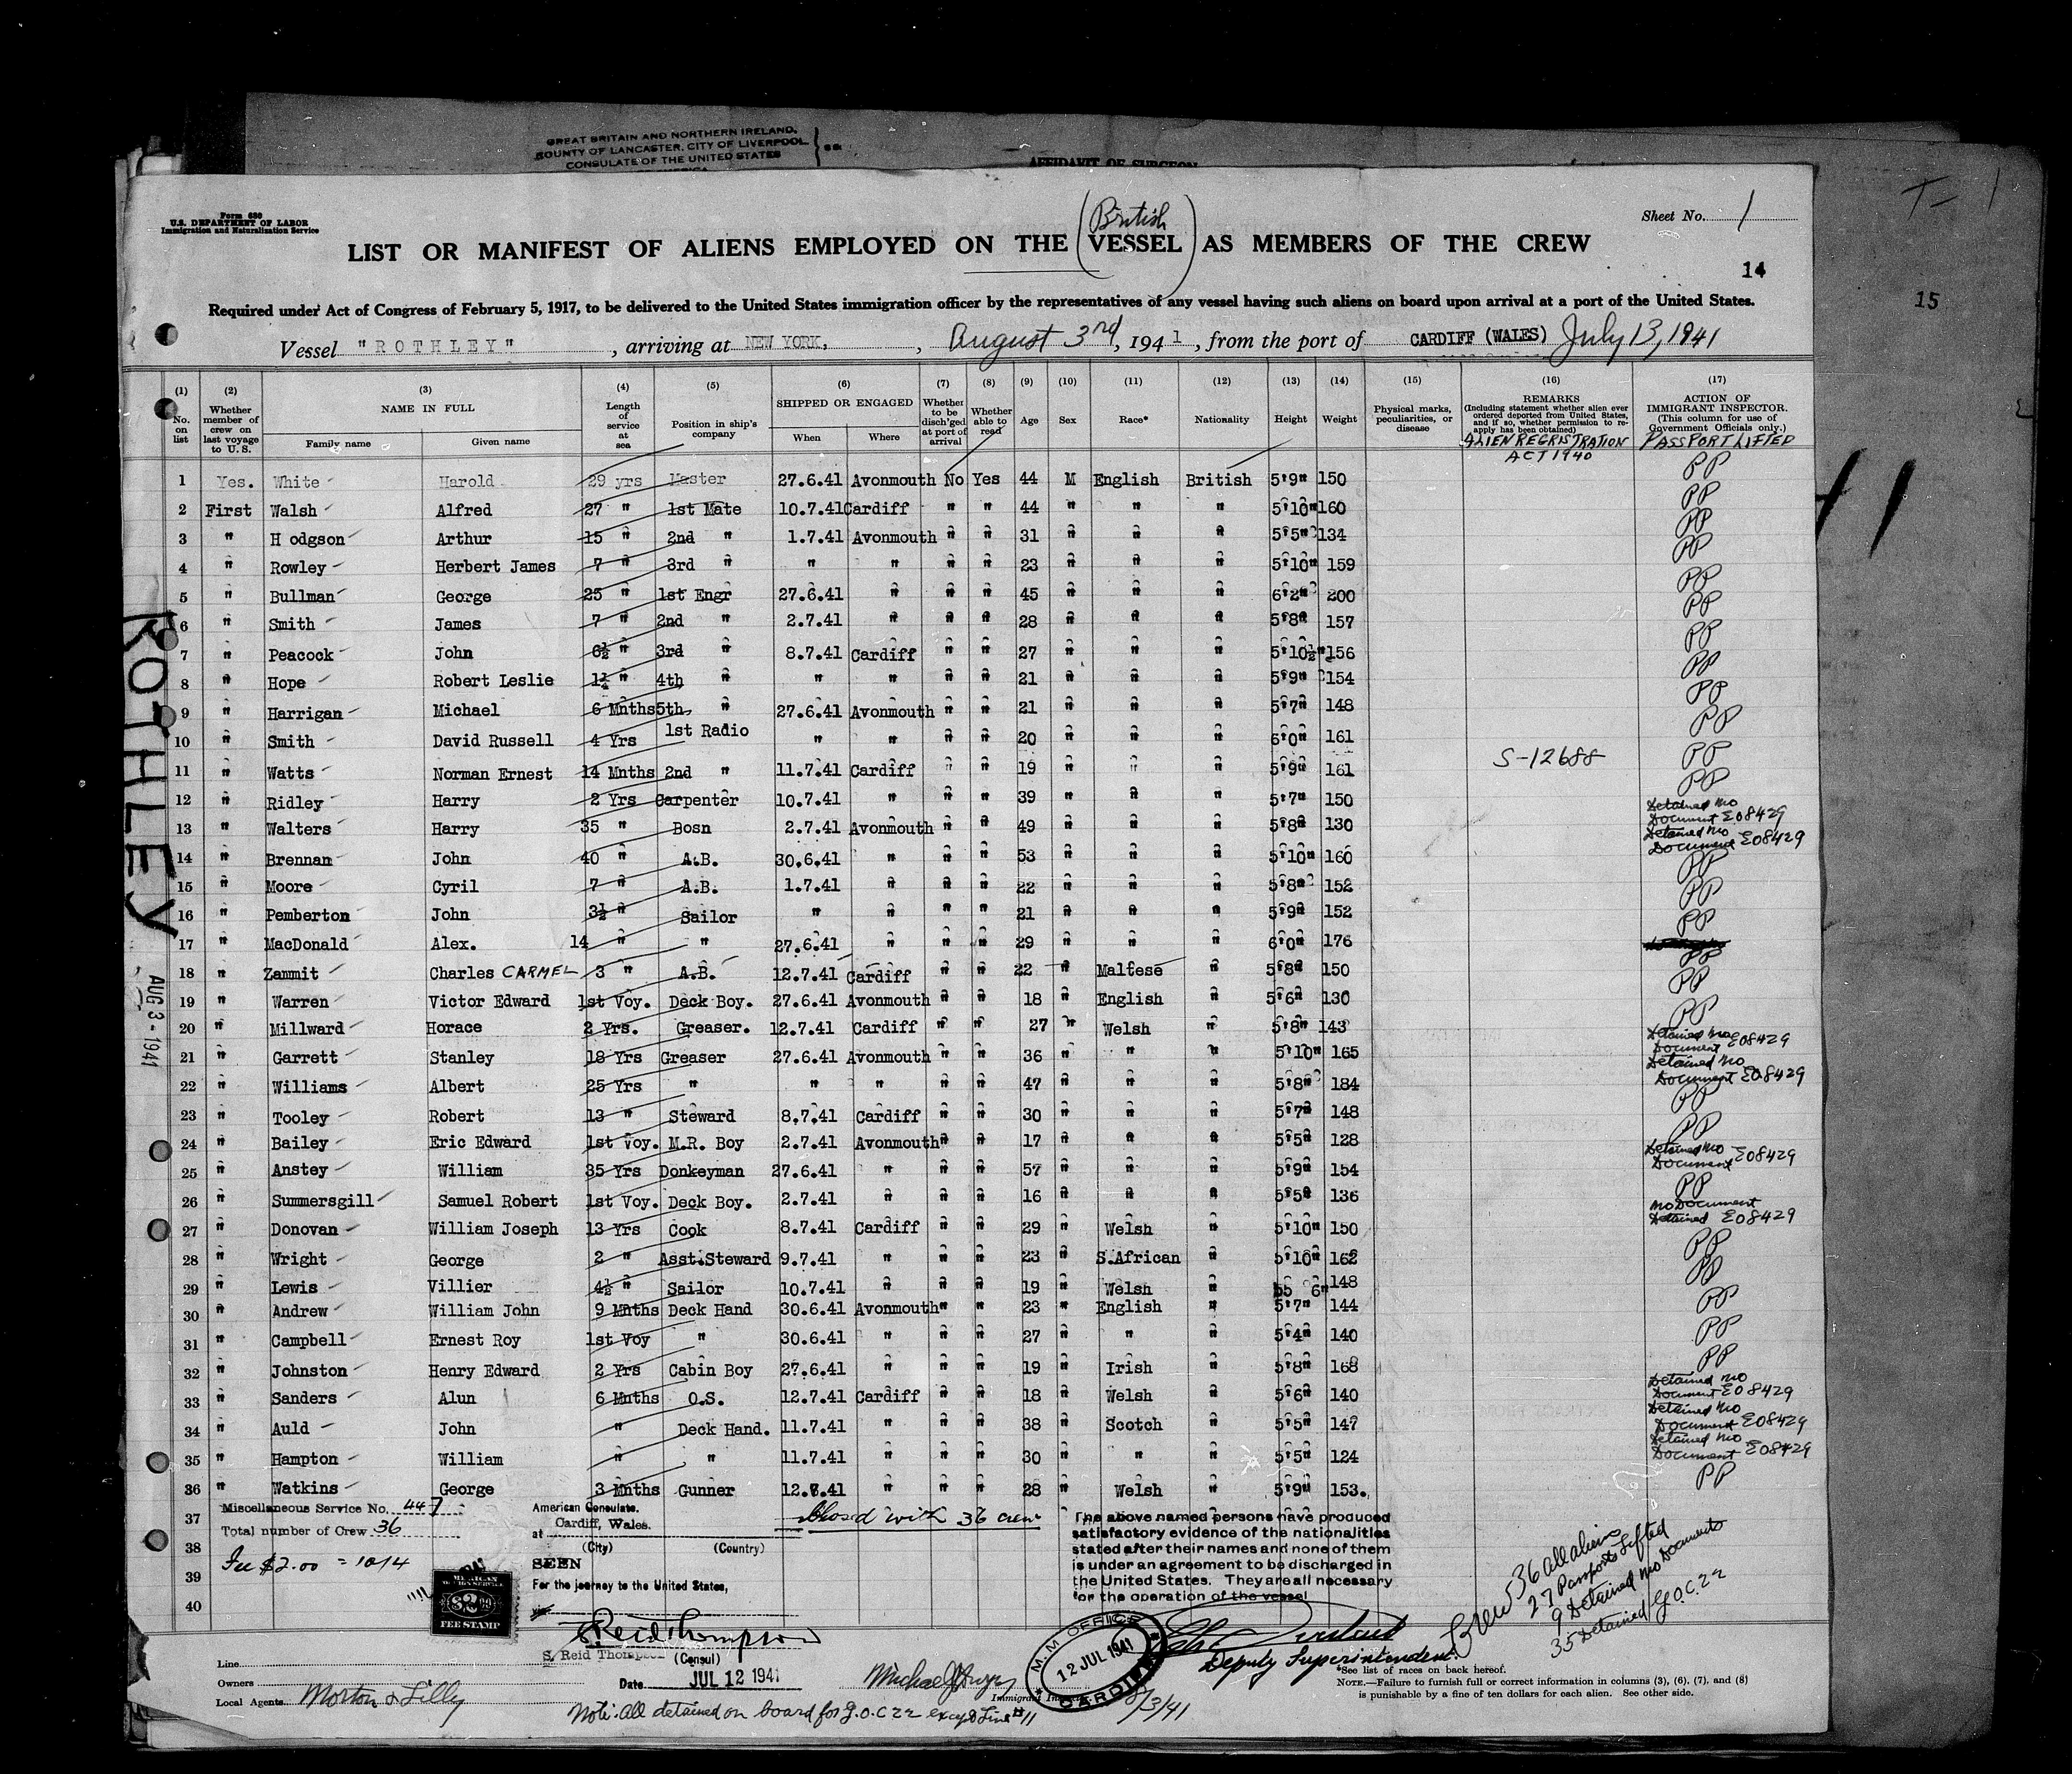 GREAT BRITAIN AND NORTHERN IRELAND,
COUNTY OF LANCASTER, CITY OF LIVERPOOL
CONSULATE OF THE UNITED STATES
AFFIDAVIT OF SURGEON
T- 1
15
Form 680
U.S. DEPARTMENT OF LABOR
Immigration and Naturalization Service
Sheet No. 1
British
LIST OR MANIFEST OF ALIENS EMPLOYED ON THE (VESSEL) AS MEMBERS OF THE CREW
14
Required under Act of Congress of February 5, 1917, to be delivered to the United States immigration officer by the representatives of any vessel having such aliens on board upon arrival at a port of the United States.
Vessel "ROTHLEY", arriving at NEW YORK, August 3rd, 1941, from the port of CARDIFF (WALES) July 13, 1941
(1) No. on list (2) Whether member of crew on last voyage to U. S. (3) NAME IN FULL Family name Given name (4) Length of service at sea (5) Position in ship's company (6) SHIPPED OR ENGAGED When Where (7) Whether to be disch'ged at port of arrival (8) Whether able to read (9) Age (10) Sex (11) Race* (12) Nationality (13) Height (14) Weight (15) Physical marks, peculiarities, or disease (16) REMARKS (Including statement whether alien ever ordered deported from United States, and if so, whether permission to reapply has been obtained) (17) ACTION OF IMMIGRANT INSPECTOR. (This column for use of Government Officials only.)
ALIEN REGRISTRATION ACT 1940 PASSPORT LIFTED
1 Yes. White Harold 29 yrs Master 27.6.41 Avonmouth No Yes 44 M English British 5'9" 150 PP
2 First Walsh Alfred 27 " 1st Mate 10.7.41 Cardiff " " 44 " " " 5'10" 160 PP
3 " Hodgson Arthur 15 " 2nd " 1.7.41 Avonmouth " " 31 " " " 5'5" 134 PP
4 " Rowley Herbert James 7 " 3rd " " " " " 23 " " " 5'10" 159 PP
5 " Bullman George 25 " 1st Engr 27.6.41 " " " 45 " " " 6'2" 200 PP
6 " Smith James 7 " 2nd " 2.7.41 " " " 28 " " " 5'8" 157 PP
7 " Peacock John 6½ " 3rd " 8.7.41 Cardiff " " 27 " " " 5'10½" 156 PP
8 " Hope Robert Leslie 1¼ " 4th " " " " " 21 " " " 5'9" 154 PP
9 " Harrigan Michael 6 Mnths 5th " 27.6.41 Avonmouth " " 21 " " " 5'7" 148 PP
10 " Smith David Russell 4 Yrs 1st Radio " " " " 20 " " " 6'0" 161 PP
11 " Watts Norman Ernest 14 Mnths 2nd " 11.7.41 Cardiff " " 19 " " " 5'9" 161 S-12688 PP
12 " Ridley Harry 2 Yrs Carpenter 10.7.41 " " " 39 " " " 5'7" 150 PP
13 " Walters Harry 35 " Bosn 2.7.41 Avonmouth " " 49 " " " 5'8" 130 Detained No Document E08429
14 " Brennan John 40 " A.B. 30.6.41 " " " 53 " " " 5'10" 160 Detained No Document E08429
15 " Moore Cyril 7 " A.B. 1.7.41 " " " 22 " " " 5'8" 152 PP
16 " Pemberton John 3½ " Sailor " " " " 21 " " " 5'9" 152 PP
17 " MacDonald Alex. 14 " " 27.6.41 " " " 29 " " " 6'0" 176 PP
18 " Zammit Charles CARMEL 3 " A.B. 12.7.41 Cardiff " " 22 " Maltese " 5'8" 150 PP
19 " Warren Victor Edward 1st Voy. Deck Boy. 27.6.41 Avonmouth " " 18 " English " 5'6" 130 PP
20 " Millward Horace 2 Yrs. Greaser. 12.7.41 Cardiff " " 27 " Welsh " 5'8" 143 PP
21 " Garrett Stanley 18 Yrs Greaser 27.6.41 Avonmouth " " 36 " " " 5'10" 165 Detained No Document E08429
22 " Williams Albert 25 Yrs " " " " " 47 " " " 5'8" 184 Detained No Document E08429
23 " Tooley Robert 13 " Steward 8.7.41 Cardiff " " 30 " " " 5'7" 148 PP
24 " Bailey Eric Edward 1st Voy. M.R. Boy 2.7.41 Avonmouth " " 17 " " " 5'5" 128 PP
25 " Anstey William 35 Yrs Donkeyman 27.6.41 " " " 57 " " " 5'9" 154 Detained No Document E08429
26 " Summersgill Samuel Robert 1st Voy. Deck Boy. 2.7.41 " " " 16 " " " 5'5" 136 PP
27 " Donovan William Joseph 13 Yrs Cook 8.7.41 Cardiff " " 29 " Welsh " 5'10" 150 No Document Detained E08429
28 " Wright George 2 " Asst.Steward 9.7.41 " " " 23 " S.African " 5'10" 162 PP
29 " Lewis Villier 4½ " Sailor 10.7.41 " " " 19 " Welsh " 5 6" 148 PP
30 " Andrew William John 9 Mnths Deck Hand 30.6.41 Avonmouth " " 23 " English " 5'7" 144 PP
31 " Campbell Ernest Roy 1st Voy " 30.6.41 " " " 27 " " " 5'4" 140 PP
32 " Johnston Henry Edward 2 Yrs Cabin Boy 27.6.41 " " " 19 " Irish " 5'8" 168 PP
33 " Sanders Alun 6 Mnths O.S. 12.7.41 Cardiff " " 18 " Welsh " 5'6" 140 Detained No Document E08429
34 " Auld John " Deck Hand. 11.7.41 " " " 38 " Scotch " 5'5" 147 Detained No Document E08429
35 " Hampton William " " 11.7.41 " " " 30 " " " 5'5" 124 Detained No Document E08429
36 " Watkins George 3 Mnths Gunner 12.7.41 " " " 28 " Welsh " 5'9" 153. PP
37
38
39
40
Miscellaneous Service No. 447
Total number of Crew 36
Fee $2.00 = 10/4
AMERICAN
FEE STAMP
American Consulate,
at Cardiff, Wales.
(City) (Country)
SEEN
For the journey to the United States,
S Reid Thompson
S. Reid Thompson (Consul)
Date JUL 12 1941
Closed with 36 crew
The above named persons have produced
satisfactory evidence of the nationalities
stated after their names and none of them
is under an agreement to be discharged in
the United States. They are all necessary
for the operation of the vessel
M.M OFFICE
12 JUL 1941
CARDIFF
Deputy Superintendent
Crew 36 all aliens
27 Passports Lifted
9 Detained No Documents
35 Detained G.O.C. 22
Line
Owners
Local Agents Morton & Lilly
Immigrant
8/3/41
Note: All detained on board for G.O.C 22 except Line #11
*See list of races on back hereof.
NOTE.—Failure to furnish full or correct information in columns (3), (6), (7), and (8)
is punishable by a fine of ten dollars for each alien. See other side.
ROTHLEY
AUG 3 - 1941